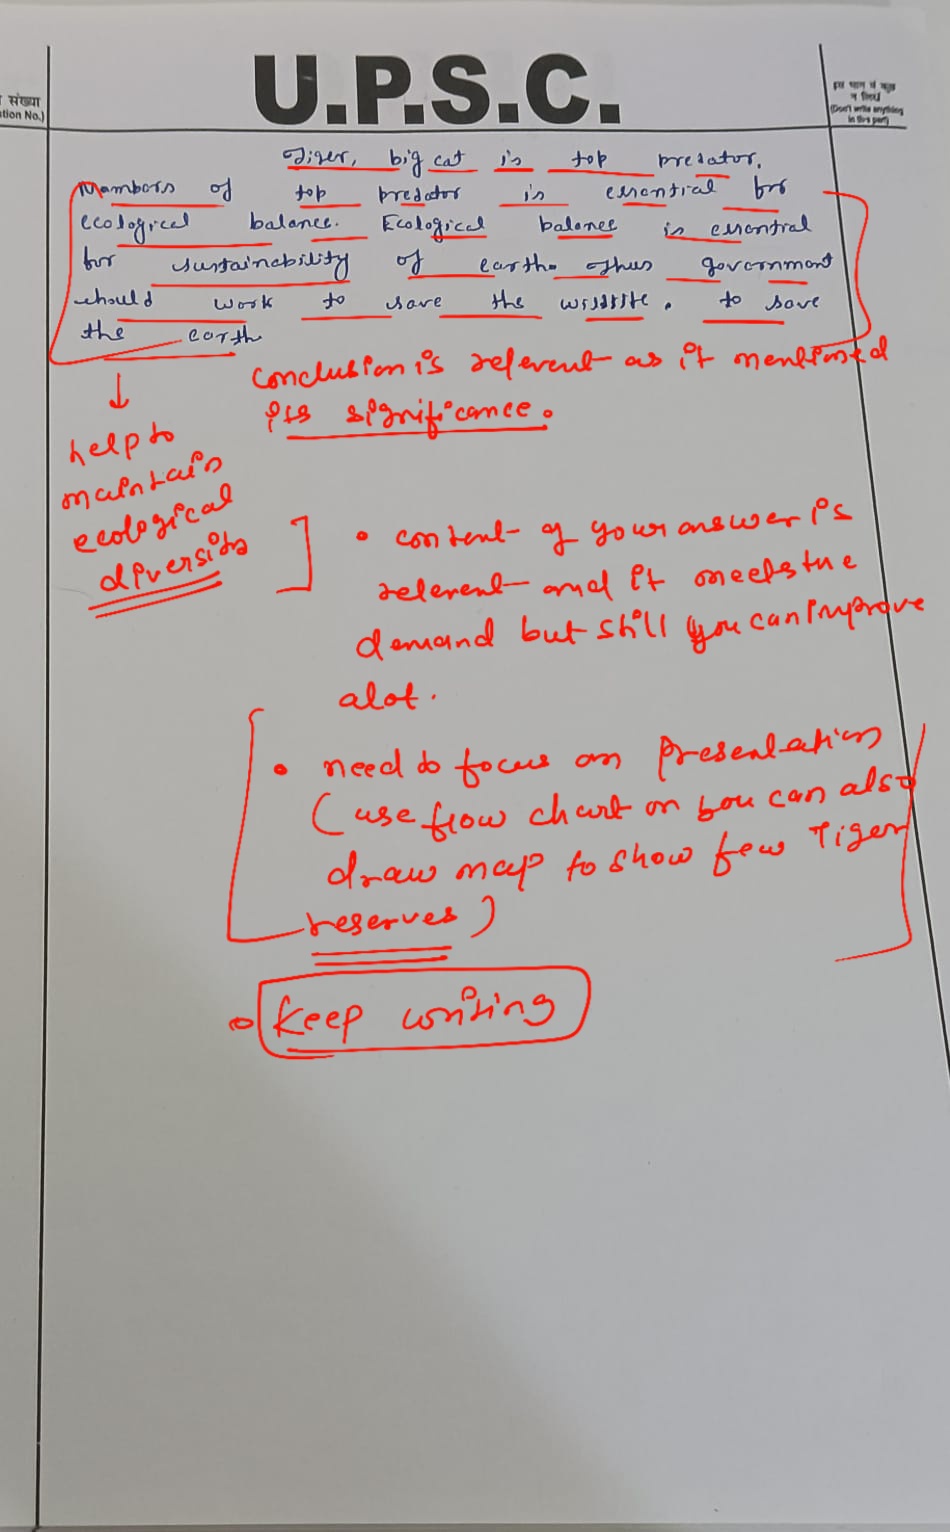 U.P.S.C.
संख्या
tion No.)
इस भाग में कुछ
न लिखें
(Don't write anything
in this part)
Tiger, big cat is top predator.
Mambors of top predator is essential for
ecological balance. Ecological balance is essential
for sustainability of earth. Thus government
should work to save the wildlife. to save
the earth
conclusion is relevent as it mentioned
its significance.
↓
help to
maintain
ecological
diversity
• content of your answer is
relevent and it meets the
demand but still you can improve
alot.
• need to focus on presentation
(use flow chart or you can also
draw map to show few Tiger
reserves)
Keep writing